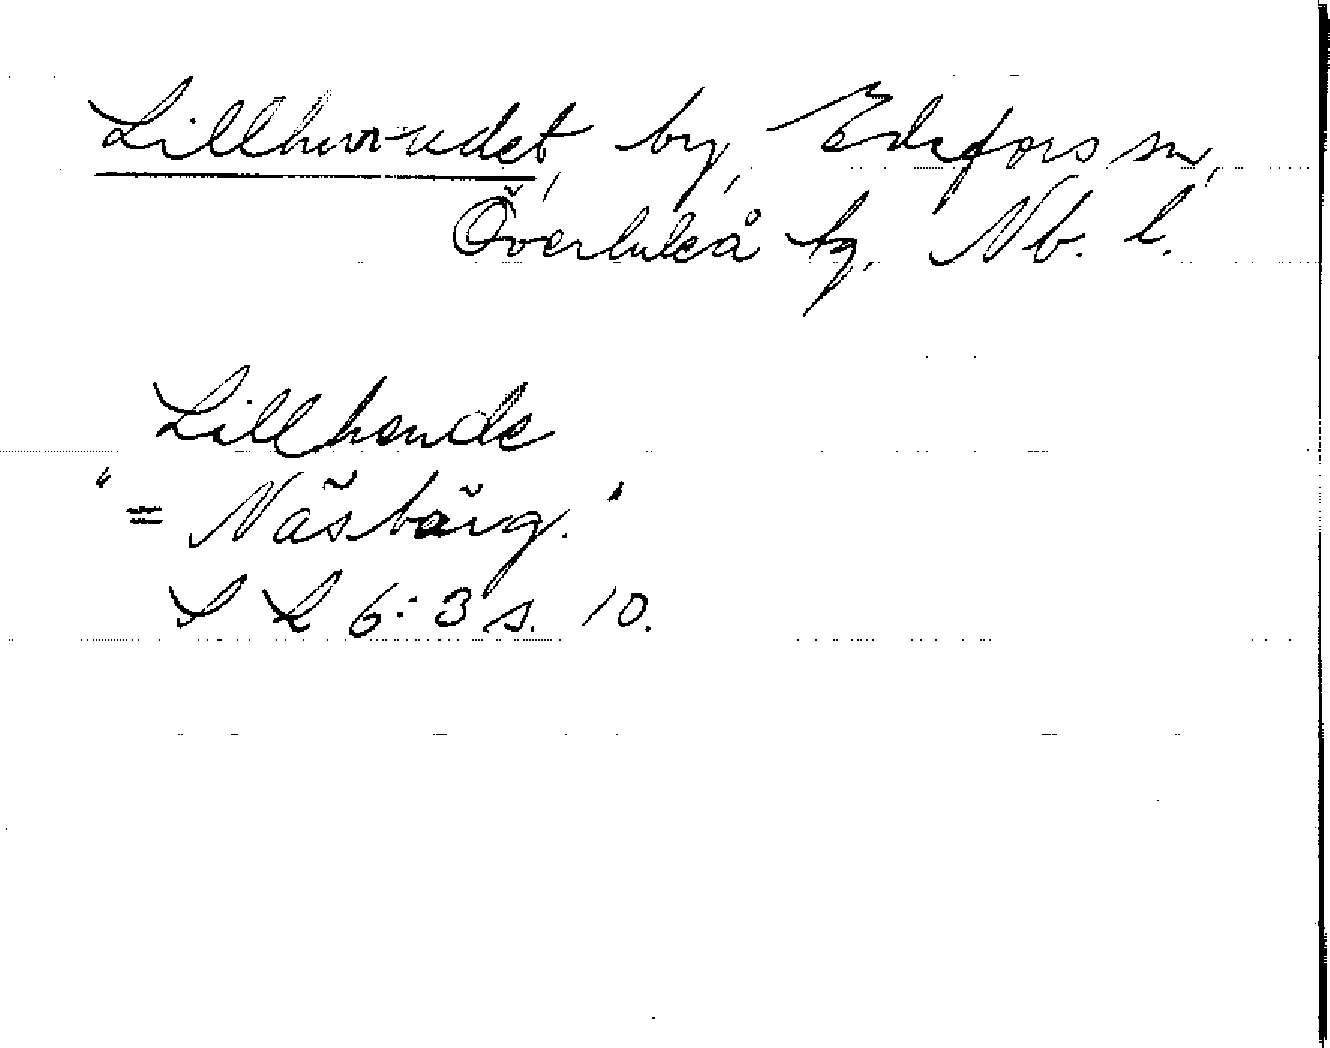 Lillhuvudet, by, Edefors sn,
Överluleå tg, Nb. l.
Lillhende
"= Näsbärg."
S L 6:3 s. 10.